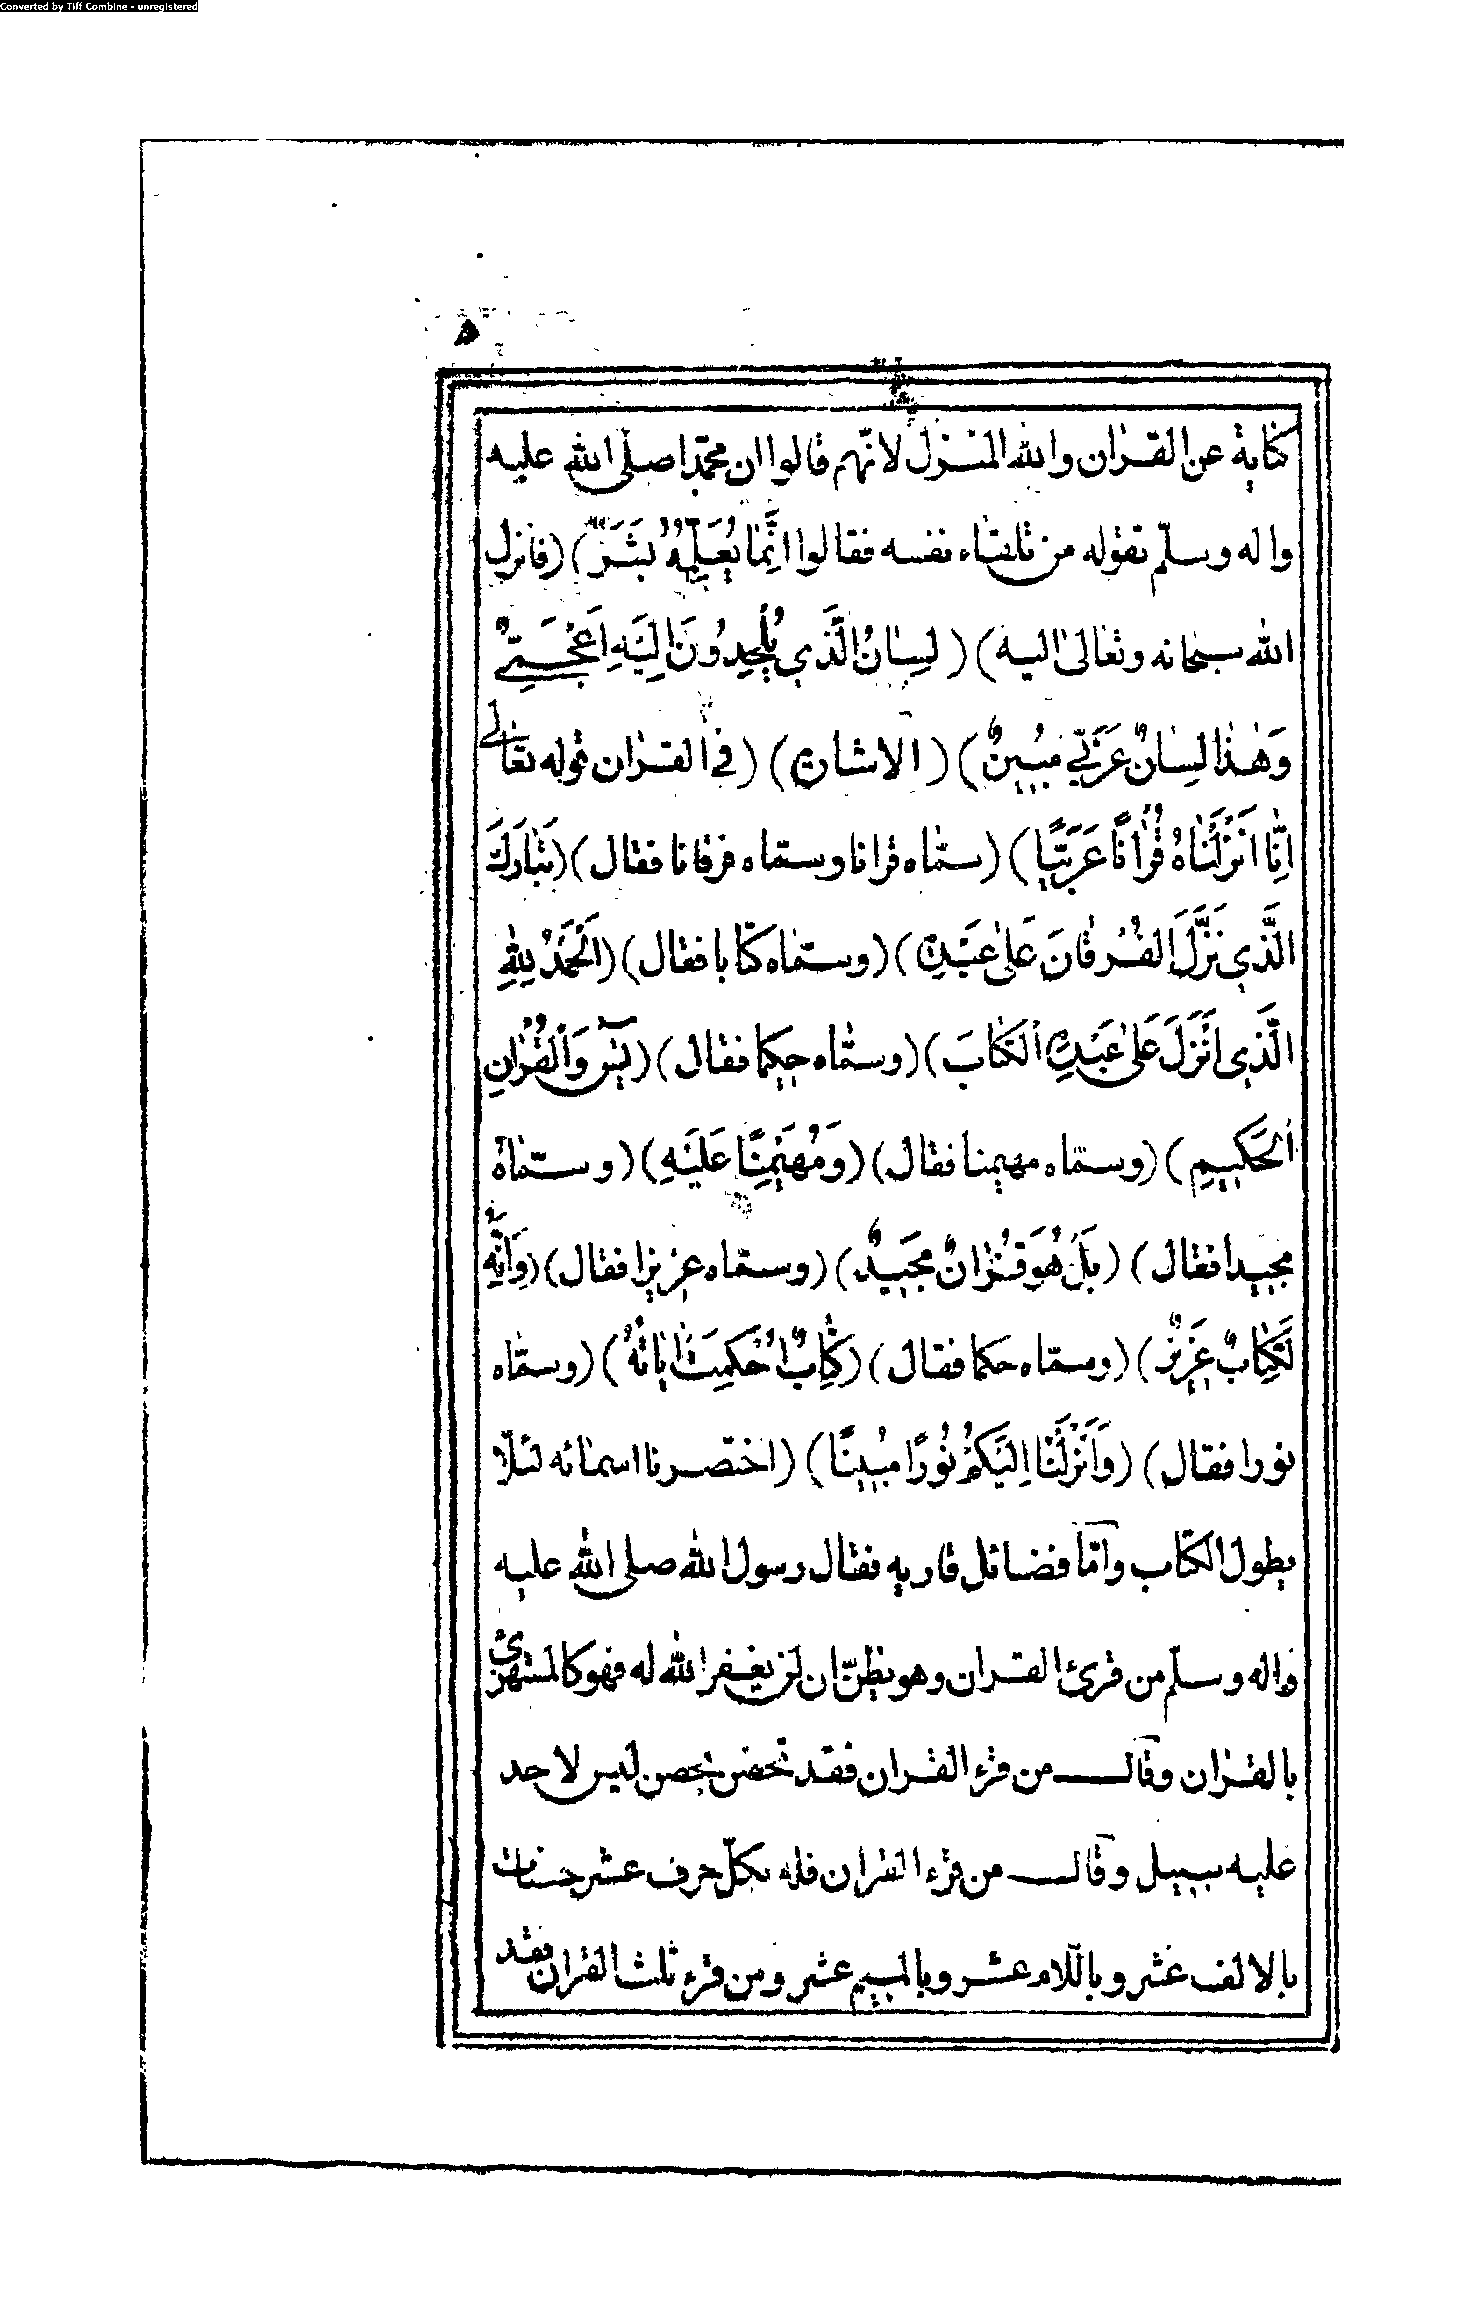 Converted by Tiff Combine - unregistered
۵
كنایة عن القرٰان والله المنزل لانّهم قالوا ان محمّدا صلّى الله علیه
واله وسلّم تقوّله من تلقاء نفسه فقالوا اِنَّمٰا یُعَلِّمُهُ بَشَرٌ) (فانزل
الله سبحانه وتعالى الیه) (لِسٰانُ الَّذي یُلْحِدُونَ اِلَیْهِ اَعْجَمِيٌّ
وَهٰذٰا لِسٰانٌ عَرَبِيٌّ مُبینٌ) (الاشارة) (في القرٰان قوله تعالى
اِنّٰا اَنْزَلْنٰاهُ قُرْاٰنًا عَرَبیًّا) (سمّاه قرانا وسمّاه فرقانا فقال) (تَبٰارَكَ
الَّذي نَزَّلَ الْفُرْقٰانَ عَلىٰ عَبْدِهِ) (وسمّاه كتابا فقال) (اَلْحَمْدُ لِلّٰهِ
الَّذي اَنْزَلَ عَلىٰ عَبْدِهِ الْكِتٰابَ) (وسمّاه حكیما فقال) (یٰسٓ وَالْقُرْاٰنِ
الْحَكیمِ) (وسمّاه مهیمنا فقال) (وَمُهَیْمِنًا عَلَیْهِ) (وسمّاه
مجیدا فقال) (بَلْ هُوَ قُرْاٰنٌ مَجیدٌ) (وسمّاه عزیزا فقال) (وَاِنَّهُ
لَكِتٰابٌ عَزیزٌ) (وسمّاه حكما فقال) (كِتٰابٌ اُحْكِمَتْ اٰیٰاتُهُ) (وسمّاه
نورا فقال) (وَاَنْزَلْنٰا اِلَیْكُمْ نُورًا مُبینًا) (اختصرنا اسمائه لئلّا
یطول الكتاب وامّا فضائل قاریه فقال رسول الله صلى الله علیه
واله وسلّم من قرئ القران وهو یظنّ ان لن یغفر الله له فهو كالمستهزئ
بالقرٰان وقال من قرء القران فقد تحصّن بحصن لیس لاحد
علیه سبیل وقال من قرء القران فله بكلّ حرف عشر حسنات
بالالف عشر وباللام عشر وبالمیم عشر ومن قرء ثلث القران فقد